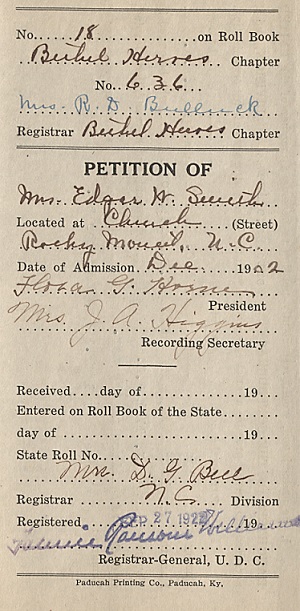 No. 18 on Roll Book
Bethel Heroes Chapter
No. 636
Mrs. R. D. Bulluck
Registrar Bethel Heroes Chapter
PETITION OF
Mrs. Edgar W. Smith
Located at Church (Street)
Rocky Mount, N.C.
Date of Admission Dec 1902
Flora G. Horne
President
Mrs. J. A. Higgins
Recording Secretary
Received....day of....................19...
Entered on Roll Book of the State........
day of....................19...
State Roll No.
Mrs. D. G. Bell
Registrar N.C. Division
Registered SEP 27 192
Fannie Ransom Williams
Registrar-General, U. D. C.
Paducah Printing Co., Paducah, Ky,